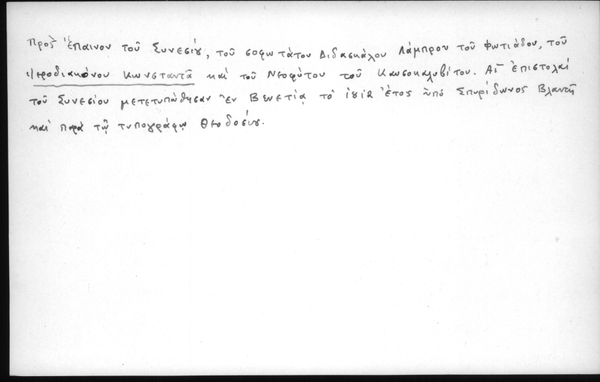 Πρὸς ἔπαινον τοῦ Συνεσίου, τοῦ σοφωτάτου Διδασκάλου Λάμπρου τοῦ Φωτιάδου, τοῦ
ἱεροδιακόνου Κωνσταντᾶ καὶ τοῦ Νεοφύτου τοῦ Καυσοκαλυβίτου. Αἱ ἐπιστολαὶ
τοῦ Συνεσίου μετετυπώθησαν ἐν Βενετίᾳ τὸ ἔτος ὑπὸ Σπυρίδωνος Βλαντῆ
καὶ παρὰ τῷ τυπογράφῳ Θεοδοσίου.